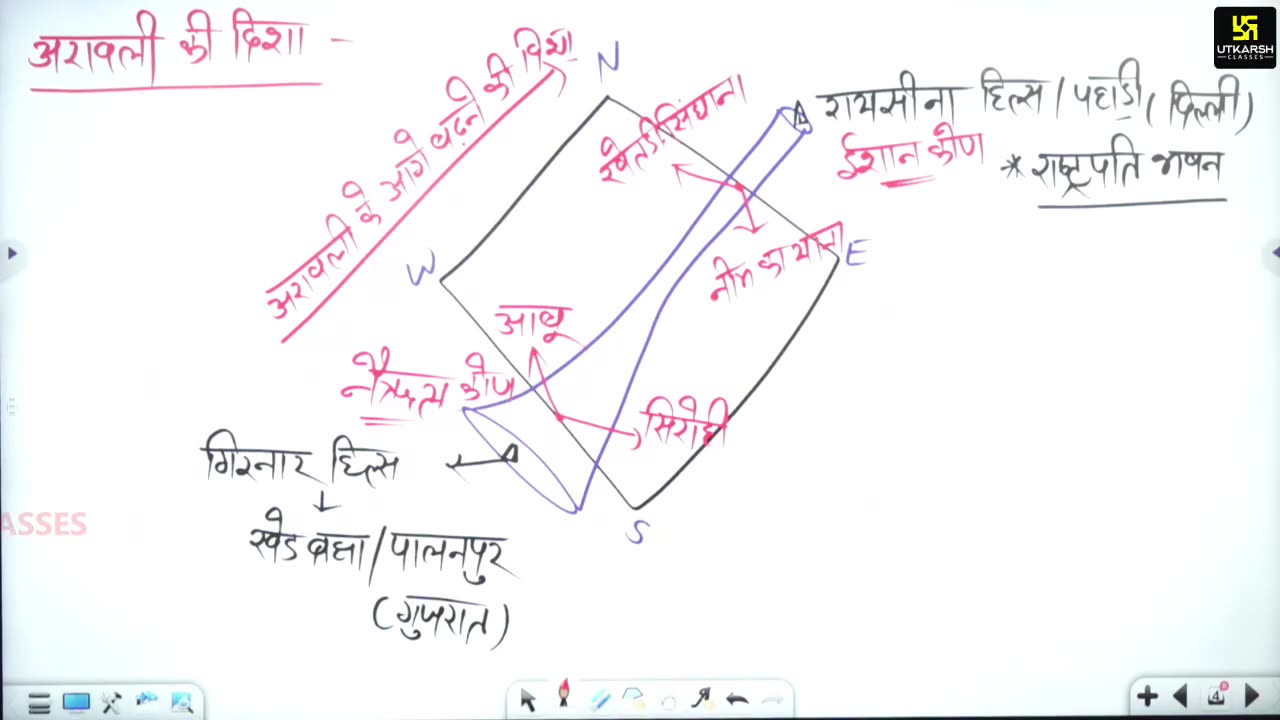 अरावली की दिशा -
अरावली के आगे बढ़ने की दिशा
N
खेतडी सिंघाना
रायसीना हिल्स / पहाडी (दिल्ली)
ईशान कोण
* राष्ट्रपति भवन
UTKARSH
CLASSES
W
E
नीम का थाना
आबू
नैऋत्य कोण
सिरोही
गिरनार हिल्स
S
खेड ब्रह्मा / पालनपुर
(गुजरात)
ASSES
4